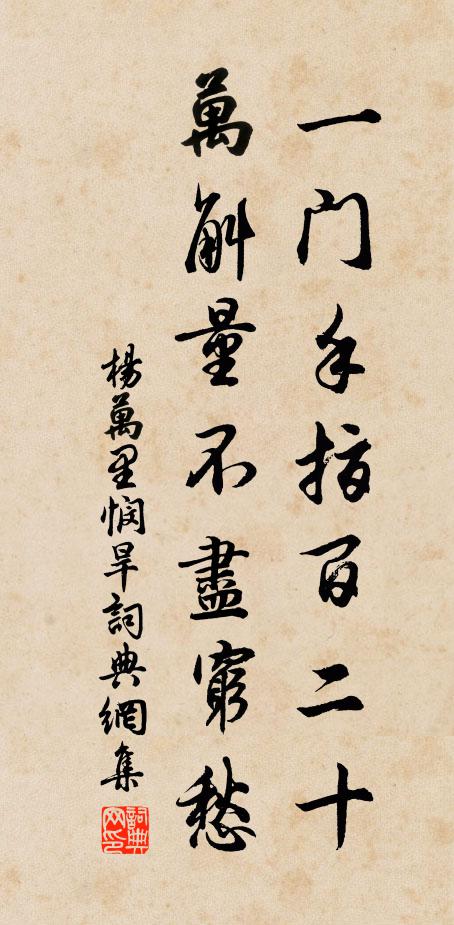 一門手指百二十
萬斛量不盡窮愁
楊萬里憫旱詞典網集
詞典
网印